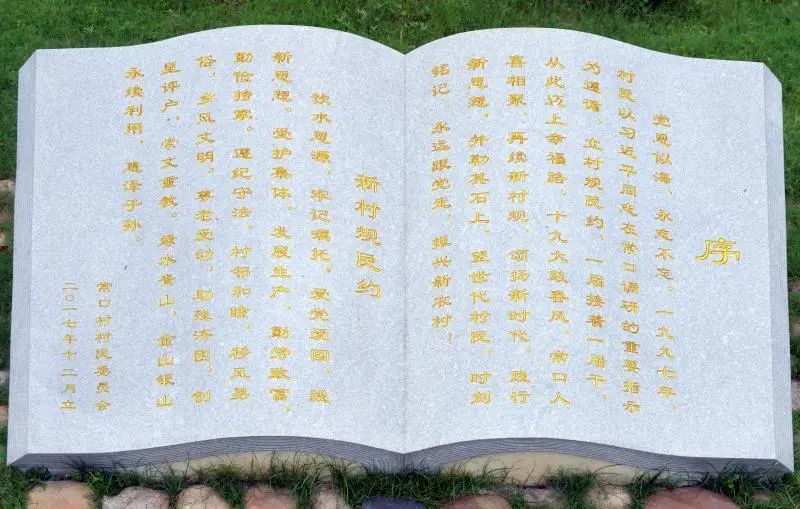 序
党恩似海，永志不忘。一九九七年，
村民以习近平同志在常口调研的重要指示
为遵循，立村规民约，一届接着一届干，
从此迈上幸福路。十九大鼓春风，常口人
喜相聚，再续新村规，颂扬新时代，践行
新思想，并勒其石上，望世代村民，时刻
铭记，永远跟党走，振兴新农村！
新村规民约
饮水思源，牢记嘱托，爱党爱国，践
新思想。爱护集体，发展生产，勤劳致富，
勤俭持家。遵纪守法，村邻和睦，移风易
俗，乡风文明。尊老爱幼，助残济困，创
星评户，崇文重教。绿水青山，金山银山
永续利用，惠泽子孙。
常口村村民委员会
二〇一七年十二月立